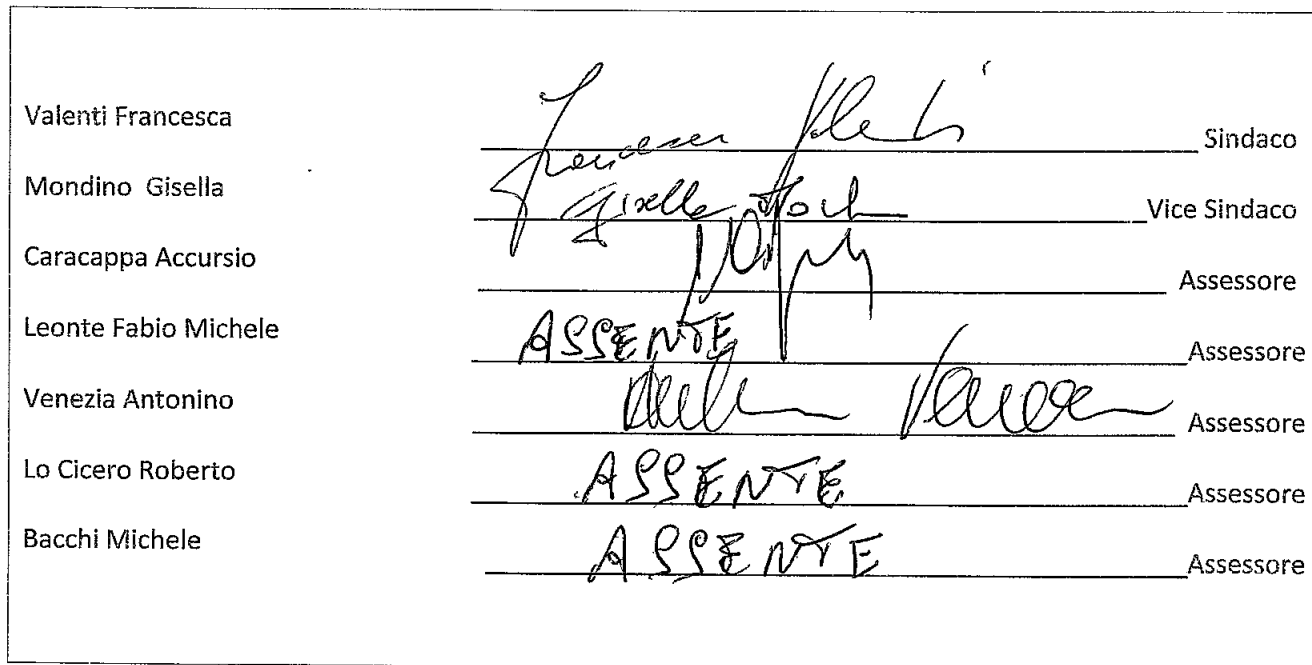 Valenti Francesca Francesca Valenti Sindaco
Mondino Gisella Gisella Vice Sindaco
Caracappa Accursio Assessore
Leonte Fabio Michele ASSENTE Assessore
Venezia Antonino Assessore
Lo Cicero Roberto ASSENTE Assessore
Bacchi Michele ASSENTE Assessore